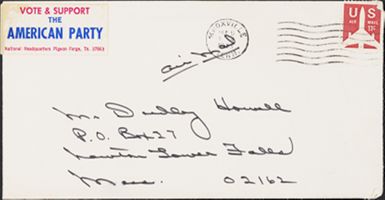 VOTE & SUPPORT
THE
AMERICAN PARTY
National Headquarters Pigeon Forge, Tn. 37863
KNOXVILLE
U S
AIR MAIL
11¢
air mail
Mr. Dudley Howell
P.O. Box 27
Newton Lower Falls
Mass. 02162